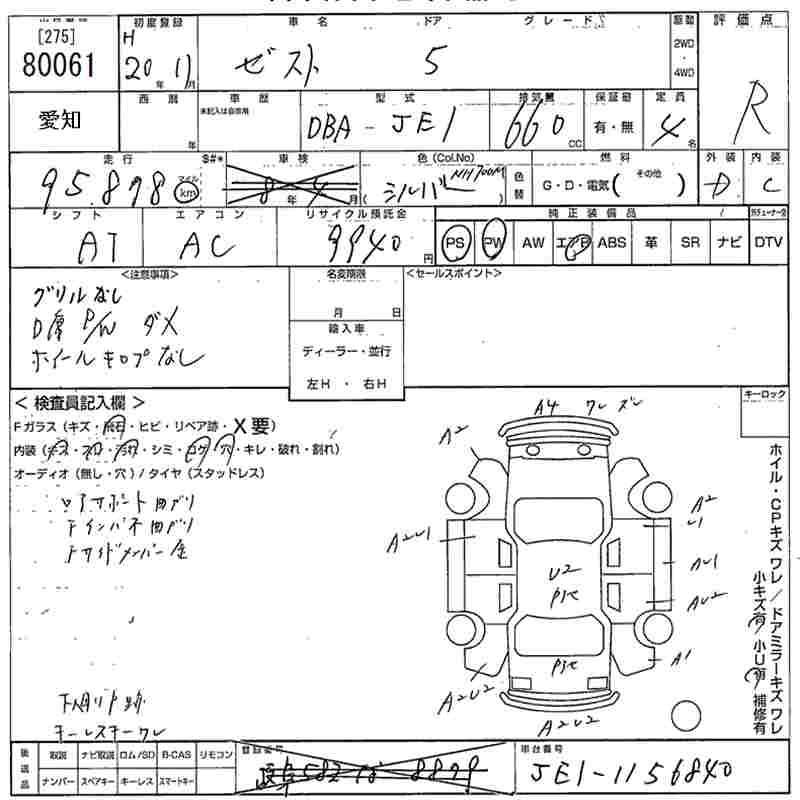 [275]
80061
初度登録
H
20年 11月
車名
ドア
グレード
ゼスト 5
駆動
2WD
4WD
評価点
R
愛知
西暦
年
車歴
未記入は自家用
型式
DBA - JE1
排気量
660 CC
保証書
有・無
定員
4名
走行
95,878
マイル
km
S#*
車検
8年 4月
色 (Col.No)
シルバー NH700M
色替
燃料
G・D・電気( その他 )
外装
D
内装
C
シフト
AT
エアコン
AC
リサイクル預託金
9940円
純正装備品
PS PW AW エアB ABS 革 SR ナビ DTV
<注意事項>
グリルなし
D席 P/W ダメ
ホイールキャップなし
名変期限
月 日
輸入車
ディーラー・並行
左H ・ 右H
<セールスポイント>
キーロック
< 検査員記入欄 >
Fガラス (キズ・飛石・ヒビ・リペア跡・X要)
内装 (キズ・スレ・汚れ・シミ・コゲ・穴・キレ・破れ・割れ)
オーディオ (無し・穴) / タイヤ (スタッドレス)
コアサポート曲がり
Fインパネ曲がり
Fサイドメンバー
キーレスキーワレ
A4 ワレ ズレ
A2
A2
U1
A2U1
AU1
U2
Pトレ
AU2
Pトレ
A1
A2U2
A2U2
ホイル・CPキズワレ/ドアミラーキズワレ
小キズ有 小U有 補修有
後送品
取説 ナビ取説 ロム/SD B-CAS リモコン
ナンバー スペアキー キーレス スマートキー
登録番号
8879
車台番号
JE1-1156840